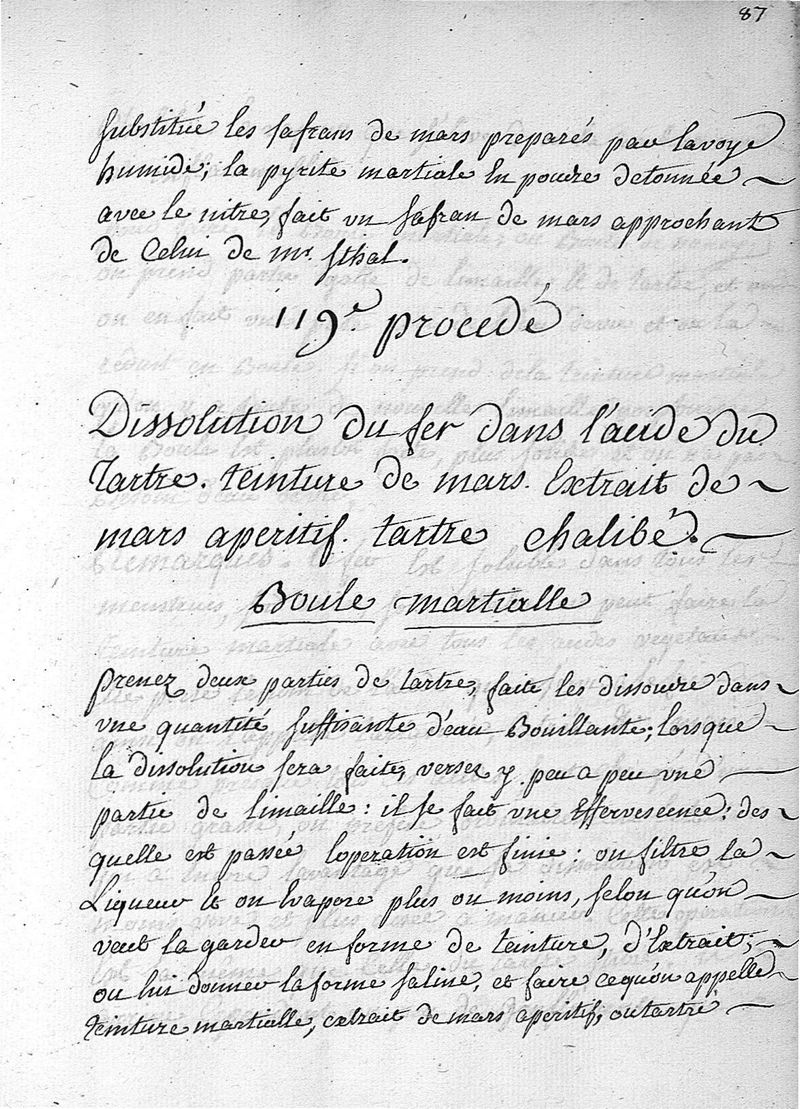 87
substitué les safrans de mars preparés par lavoye
humide; la pyrite martiale En poudre detonnée
avec le nitre fait un safran de mars approchant
de Celui de mr. sthal.
119e. procedé
Dissolution du fer dans l'acide du
Tartre. teinture de mars. Extrait de
mars aperitif. tartre chalibé.
Boule martialle
prenez deux parties de tartre, faite les dissoudre dans
vne quantité suffisante d'eau Bouillante; lorsque
la dissolution sera faite, versez y peu a peu vne
partie de limaille: il se fait vne Effervescence: des
quelle est passée loperation est finie: on filtre la
Liqueur Et on Evapore plus ou moins, selon qu'on
veut la garder en forme de teinture, d'Extrait;
ou lui donner la forme saline, et faire cequ'on appelle
teinture martialle, extrait de mars aperitif, outartre